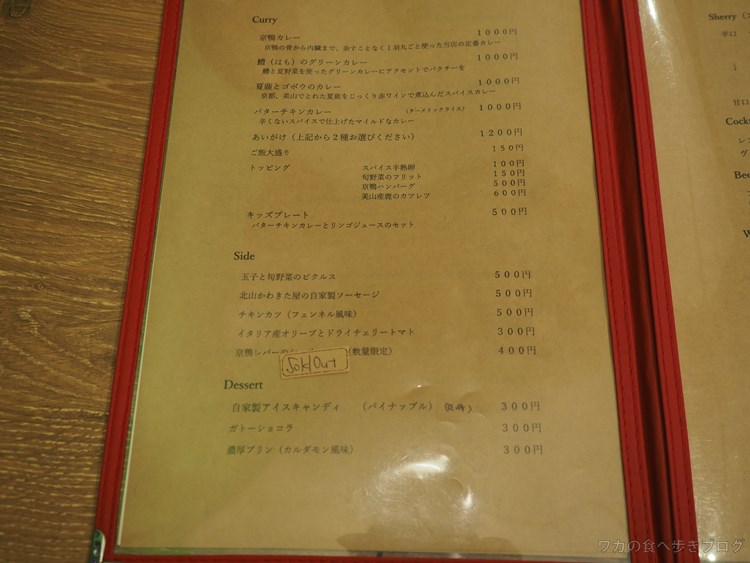 Curry
京鴨カレー 1000円
京鴨の骨から内臓まで、余すことなく1羽丸ごと使った当店の定番カレー
鱧(はも)のグリーンカレー 1000円
鱧と夏野菜を使ったグリーンカレーにアクセントでパクチーを
夏鹿とゴボウのカレー 1000円
京都、美山でとれた夏鹿をじっくり赤ワインで煮込んだスパイスカレー
バターチキンカレー (ターメリックライス) 1000円
辛くないスパイスで仕上げたマイルドなカレー
あいがけ(上記から2種お選びください) 1200円
ご飯大盛り 150円
トッピング スパイス半熟卵 100円
旬野菜のフリット 150円
京鴨ハンバーグ 500円
美山産鹿のカツレツ 600円
キッズプレート 500円
バターチキンカレーとリンゴジュースのセット
Side
玉子と旬野菜のピクルス 500円
北山かわきた屋の自家製ソーセージ 500円
チキンカツ(フェンネル風味) 500円
イタリア産オリーブとドライチェリートマト 300円
京鴨レバーの (数量限定) 400円
Sold Out
Dessert
自家製アイスキャンディ (パイナップル) 300円
ガトーショコラ 300円
濃厚プリン(カルダモン風味) 300円
Sherry
辛口
甘口
Cock
Bee
W
ワカの食べ歩きブログ